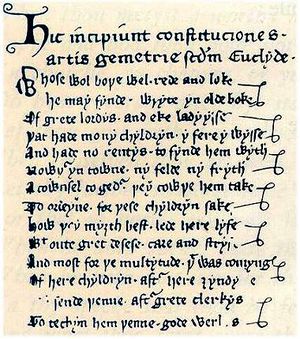 Hic incipiunt constituciones
artis gemetrie secdm Euclyde.
Whose wol boþe wel rede and loke
he may fynde wryte yn olde boke
Of grete lordys and eke ladyysse
þat hade mony chyldryn y fere y wysse
And hade no rentys to fynde hem wyth
Nowþer yn towne ny felde ny fryth
A cownsel togeder þey cowþe hem take
To ordeyne for þese chyldryn sake
How þey myȝth best lede here lyfe
Wtoute gret desese care and stryf
And most for þe multytude þt was comynge
Of here chyldryn aftr here ȝyndynge
sende þenne aftr grete clerkys
To techyn hem þenne gode werkys